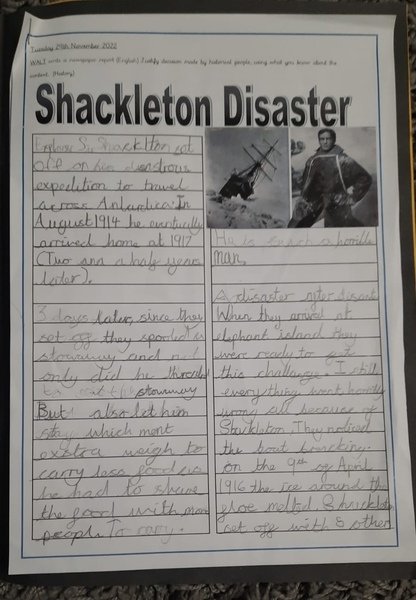 Tuesday 29th November 2022
WALT write a newspaper report (English) Justify decision made by historical people, using what you know about the
content. (History)
Shackleton Disaster
Explorer Sir Shackleton set
off on his disastrous
expedition to travel
across Antardica. In
August 1914 he eventually
arrived home at 1917
(Two ann a haly years
later).
3 days later, since they
set off they spotted a
stowaway and not
only did he
to eat the stowaway
But also let him
stay which ment
exstra weigh to
carry less food as
he had to share
the good with more
peopl. To carry.
He is such a horrible
man.
A disaster after disaster
When they arrived at
elephant island they
were ready to
this challange. I still
everything went horribly
wrong all because of
Shackleton. They noticed
the boat
on the 9th of April
1916 the ice around the
gloe melted. Shackleton
set off with 8 other